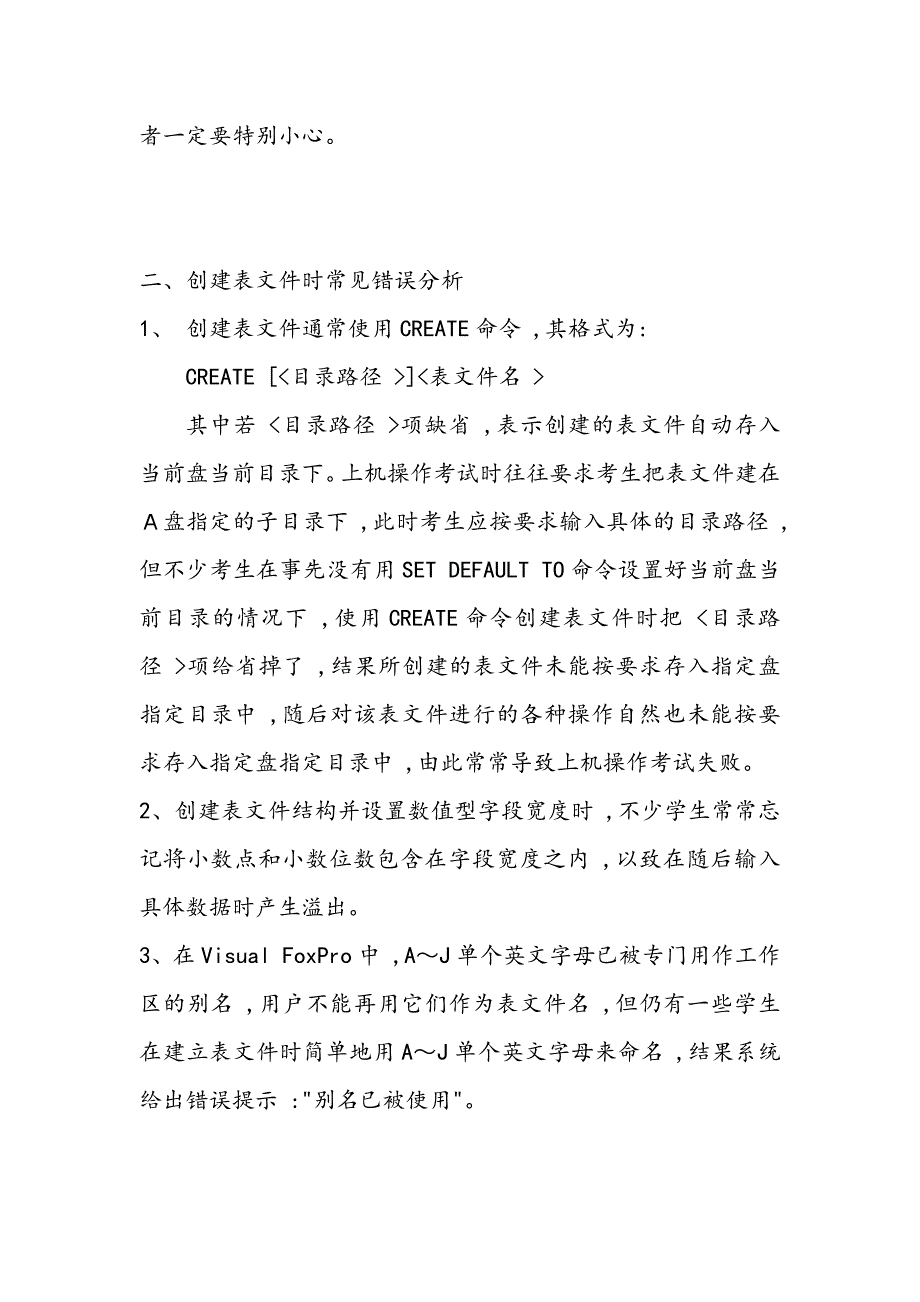 者一定要特别小心。
二、创建表文件时常见错误分析
1、 创建表文件通常使用CREATE命令 ,其格式为:
CREATE [<目录路径 >]<表文件名 >
其中若 <目录路径 >项缺省 ,表示创建的表文件自动存入
当前盘当前目录下。上机操作考试时往往要求考生把表文件建在
A盘指定的子目录下 ,此时考生应按要求输入具体的目录路径 ,
但不少考生在事先没有用SET DEFAULT TO命令设置好当前盘当
前目录的情况下 ,使用CREATE命令创建表文件时把 <目录路
径 >项给省掉了 ,结果所创建的表文件未能按要求存入指定盘
指定目录中 ,随后对该表文件进行的各种操作自然也未能按要
求存入指定盘指定目录中 ,由此常常导致上机操作考试失败。
2、创建表文件结构并设置数值型字段宽度时 ,不少学生常常忘
记将小数点和小数位数包含在字段宽度之内 ,以致在随后输入
具体数据时产生溢出。
3、在Visual FoxPro中 ,A～J单个英文字母已被专门用作工作
区的别名 ,用户不能再用它们作为表文件名 ,但仍有一些学生
在建立表文件时简单地用A～J单个英文字母来命名 ,结果系统
给出错误提示 :"别名已被使用"。